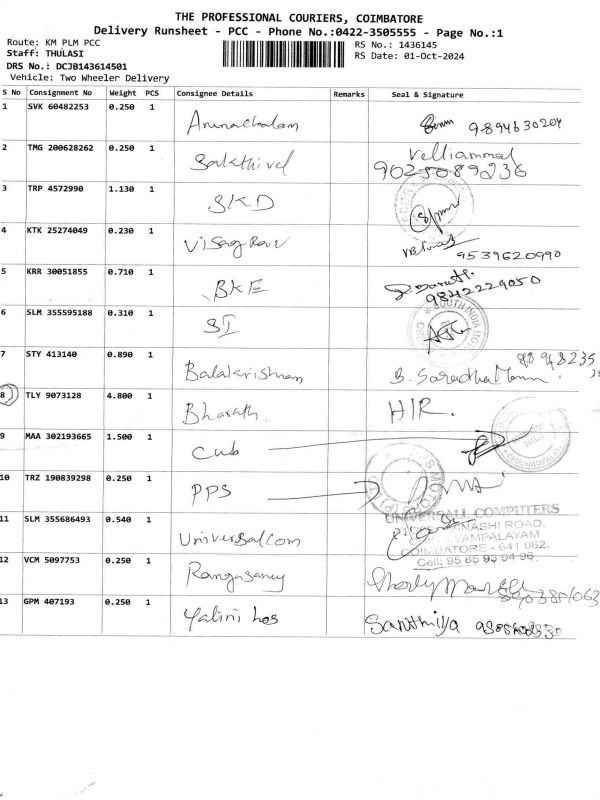 THE PROFESSIONAL COURIERS, COIMBATORE
Delivery Runsheet - PCC - Phone No.:0422-3505555 - Page No.:1
Route: KM PLM PCC
RS No.: 1436145
Staff: THULASI
RS Date: 01-Oct-2024
DRS No.: DCJB143614501
Vehicle: Two Wheeler Delivery
S No Consignment No Weight PCS Consignee Details Remarks Seal & Signature
1 SVK 60482253 0.250 1 Arunachalam 9894630204
2 TMG 200628262 0.250 1 Sakthivel Velliammal
9025089236
3 TRP 4572990 1.130 1 SKD
4 KTK 25274049 0.230 1 9539620990
5 KRR 30051855 0.710 1 BKE 9842229050
6 SLM 355595188 0.310 1 SI
7 STY 413140 0.890 1 Balakrishnan B.
8 TLY 9073128 4.800 1 Bharath. HIR.
9 MAA 302193665 1.500 1 CUB
10 TRZ 190839298 0.250 1 PPS
11 SLM 355686493 0.540 1 Universalcom
UNIVERSALL COMPUTERS
COIMBATORE - 641 062.
Cell: 95 85 93 94 96
12 VCM 5097753 0.250 1 Rangasamy
13 GPM 407193 0.250 1 Yalini hos Santhiya